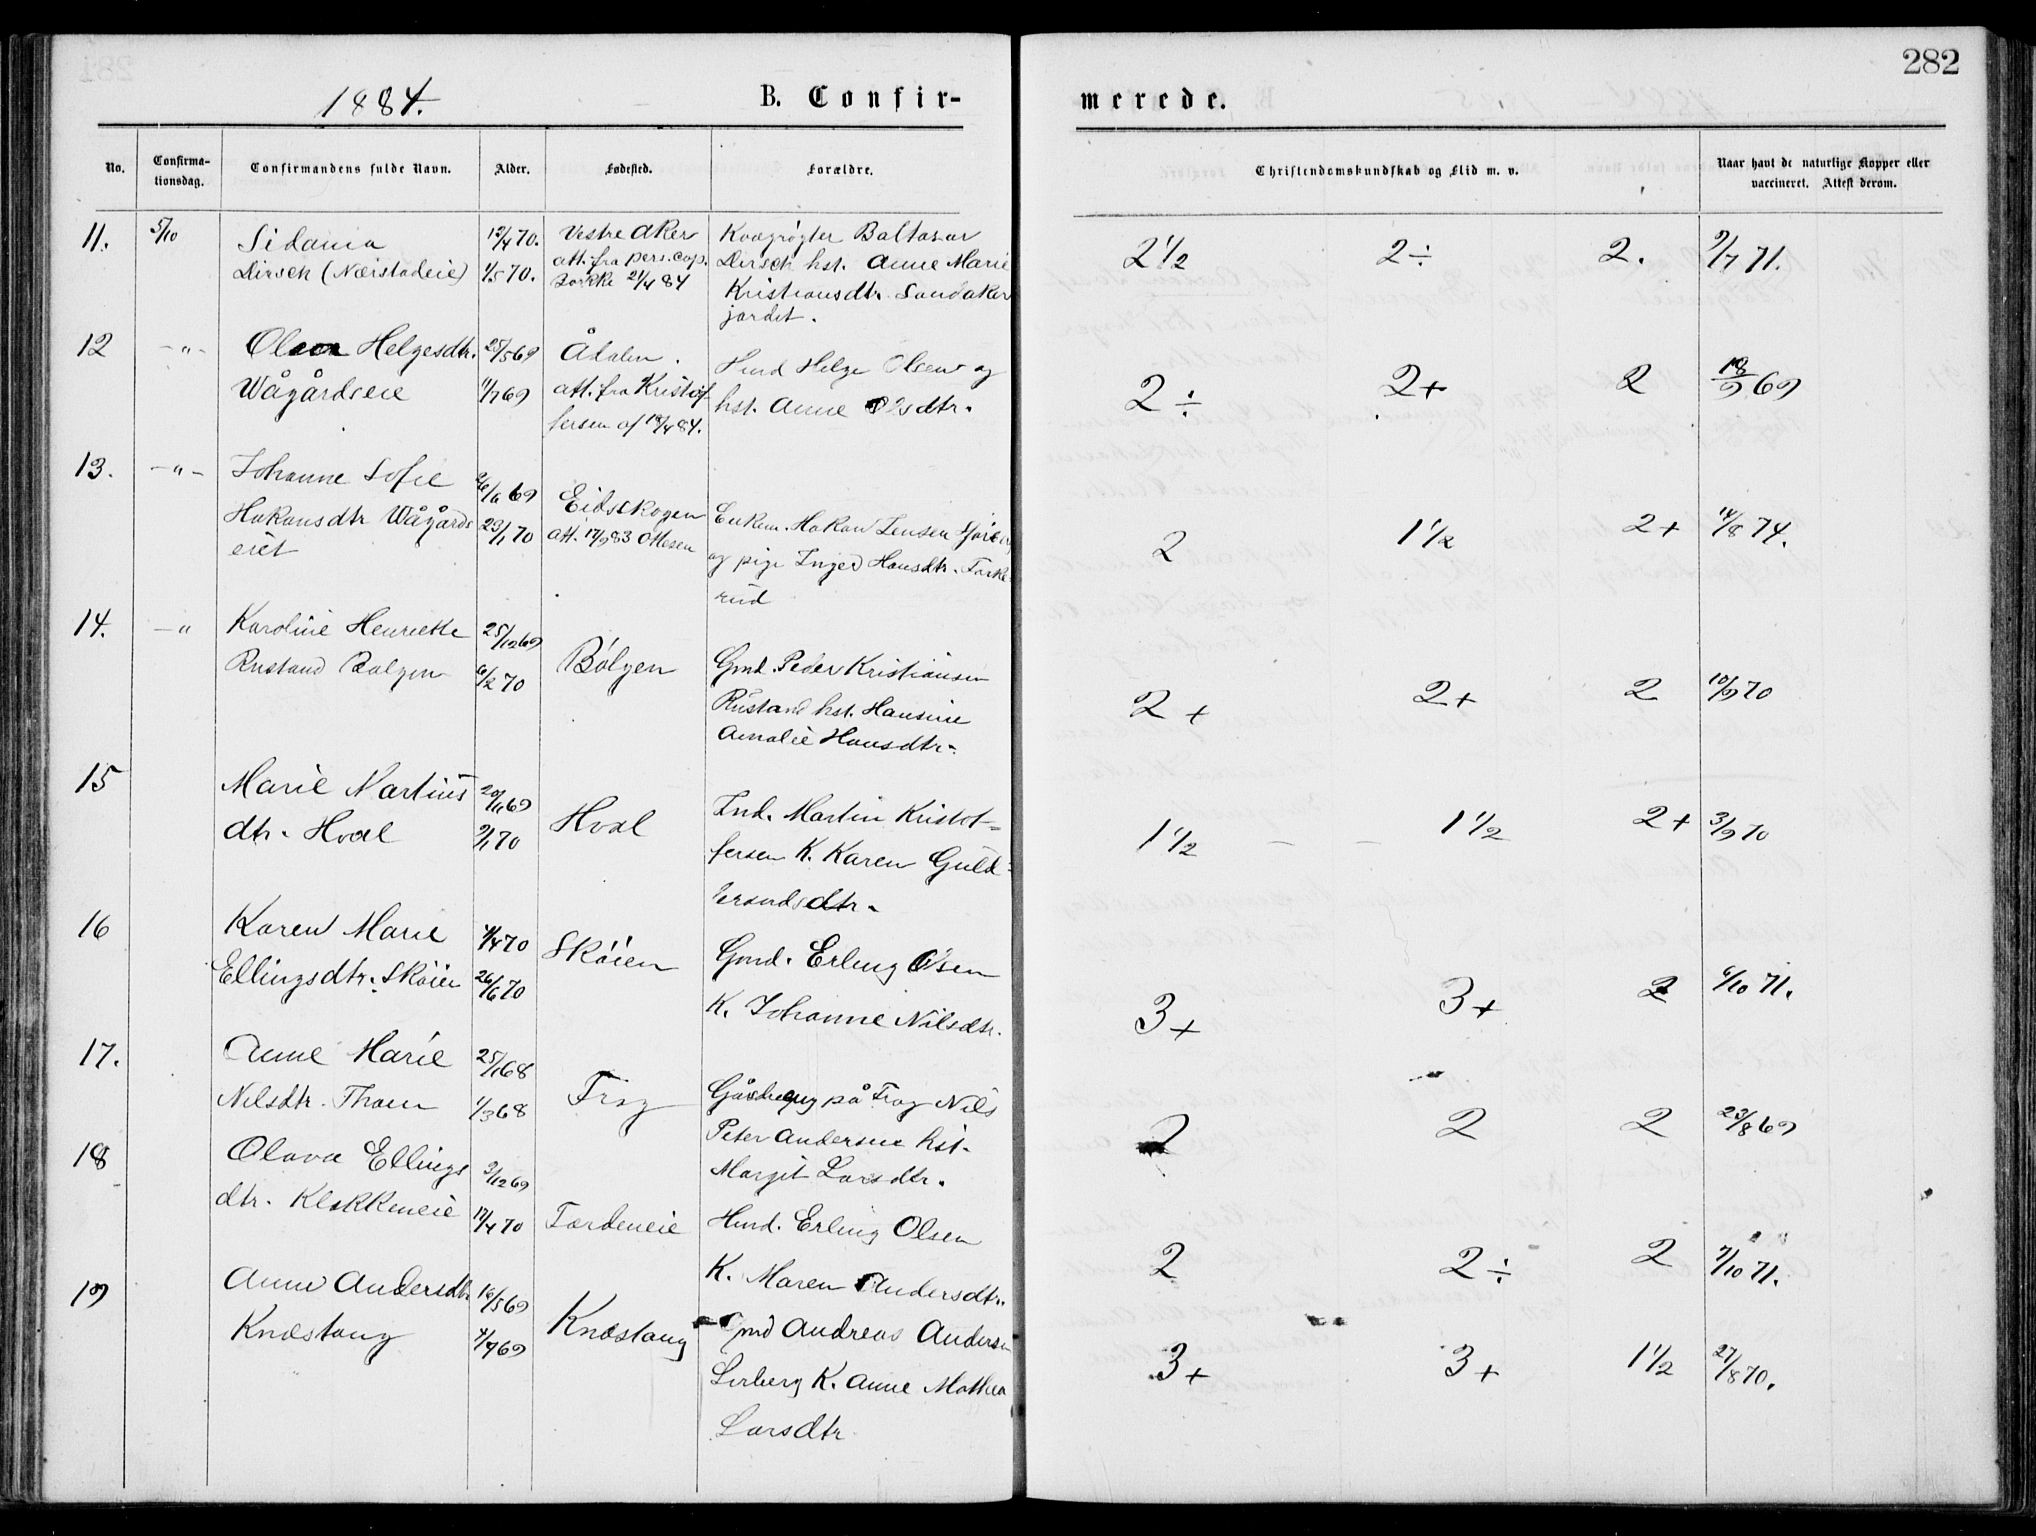 282
1884.
B. Confir-
merede.
No.
Confirma-
tionsdag.
Confirmandens fulde Navn.
Alder.
Fødested.
Forældre.
Christendomskundskab og Flid m. v.
Naar havt de naturlige Kopper eller
vaccineret. Attest derom.
11. 5/10 Sidania 12/4 70. Vestre Aker Kvægrøgter Baltasar
Dirsch (Næistadeie) 1/5 70. att. fra pers. cap. Dirsch hst. Anne Marie
21/4 84 Kristiansdtr. Sandaker
jordet.
2 1/2 2÷ 2. 9/7 71.
12 -"- Olea Helgesdtr. 25/5 69 Ådalen. Hmd Helge Olsen og
Wågårdseie 11/7 69 att. fra Kristof hst. Anne Olsdtr.
fersen af 18/4 84.
2÷ 2+ 2 18/9 69
13. -"- Johanne Sofie 26/11 69 Eidskogen Enkem. Hakan Jensen
Hakansdtr Wågårds 23/1 70 att. 17/9 83 Ottesen og pige Inger Hansdtr. Tarke
eiet rud
2 1 1/2 2+ 14/8 74.
14. -" Karoline Henriette 25/12 69 Bölgen Gmd. Peder Kristiansen
Rustand Bølgen 6/2 70 Rustand hst. Hansine
Amalie Hansdtr.
2+ 2+ 2 10/9 70
15 Marie Martins 20/11 69 Hval Ind. Martin Kristof=
dtr. Hval 9/1 70 fersen K. Karen Guld=
brandsdtr.
1 1/2 - - 1 1/2 2+ 3/9 70
16 Karen Marie 4/4 70 Sköien Gmd. Erling Olsen
Ellingsdtr. Sköien 26/6 70 K. Johanne Nilsdtr.
3+ 3+ 2 6/10 71.
17. Anne Marie 25/1 68 Frog på Frog Nils
Nilsdtr. Thoen 1/3 68 Peter Andersen hst.
Margit Larsdtr.
2 2 2 23/8 69
18 Olava Ellings 3/12 69 Hmd. Erling Olsen
dtr. Klokkeneie 17/4 70 Tordeneie K. Maren Andersdtr.
2 2÷ 2 7/10 71.
19 Anne Andersdtr 16/5 69 Knestang Gmd Andreas Andersen
Knestang 4/7 69 Lerberg K. Anne Mathea
Larsdtr
3+ 3+ 1 1/2 27/8 70.